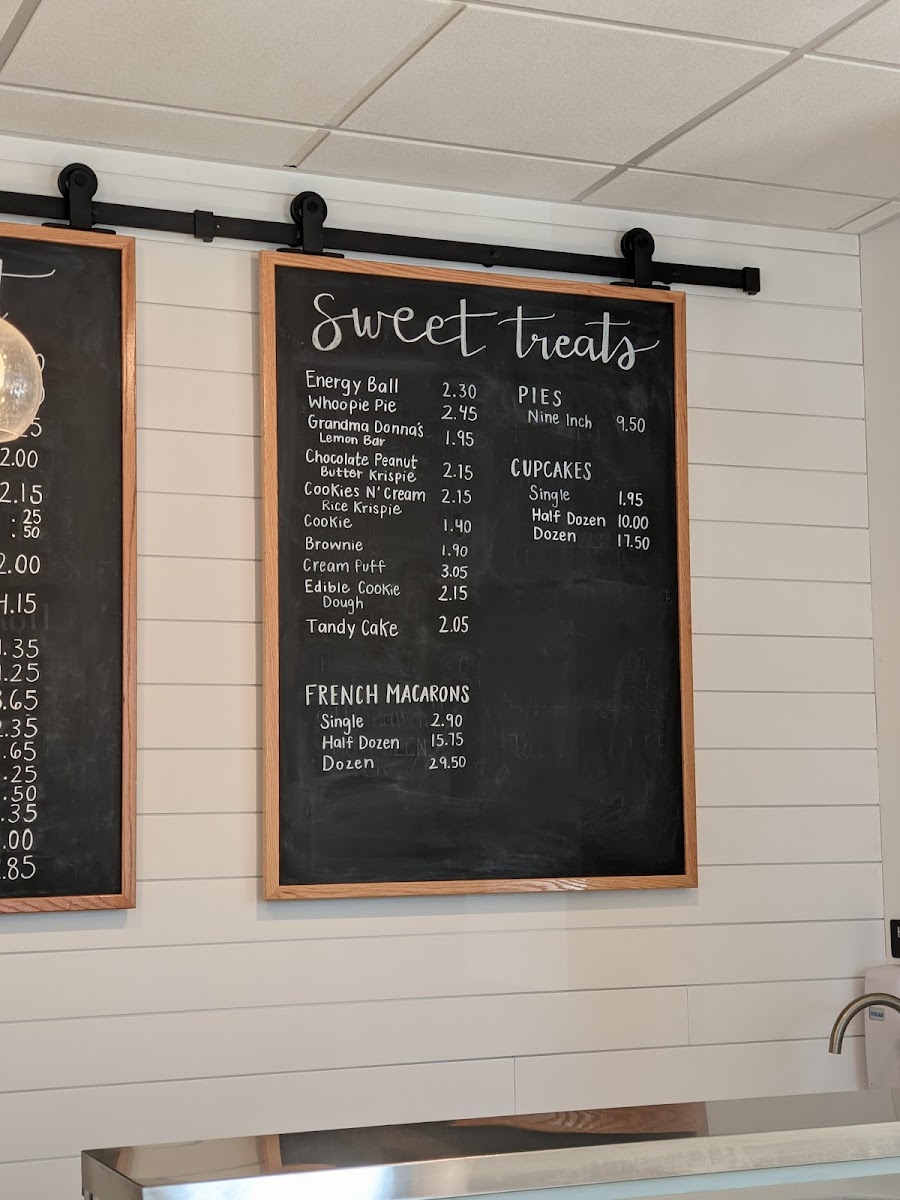 2.00
2.15
: 25
: 50
2.00
.15
.35
.25
.65
.35
.65
.25
.50
.35
.00
.85
Sweet treats
Energy Ball 2.30
Whoopie Pie 2.45
Grandma Donna's
Lemon Bar 1.95
Chocolate Peanut
Butter Krispie 2.15
Cookies N' Cream 2.15
Rice Krispie
Cookie 1.40
Brownie 1.90
Cream Puff 3.05
Edible Cookie 2.15
Dough
Tandy Cake 2.05
FRENCH MACARONS
Single 2.90
Half Dozen 15.75
Dozen 29.50
PIES
Nine Inch 9.50
CUPCAKES
Single 1.95
Half Dozen 10.00
Dozen 17.50